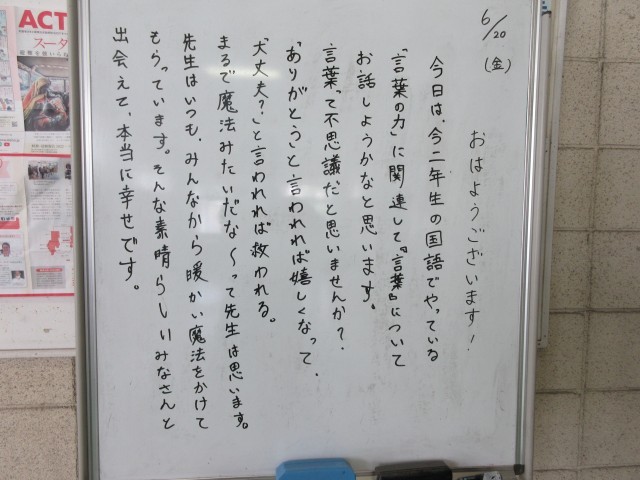 6/20
(金)
おはようございます!
今日は、今二年生の国語でやっている
「言葉の力」に関連して『言葉』について
お話しようかなと思います。
言葉って不思議だと思いませんか?
「ありがとう」と言われれば嬉しくなって、
「大丈夫?」と言われれば救われる。
まるで魔法みたいだな〜って先生は思います。
先生はいつも、みんなから暖かい魔法をかけて
もらっています。そんな素晴らしいみなさんと
出会えて、本当に幸せです。
ACT
スーダ